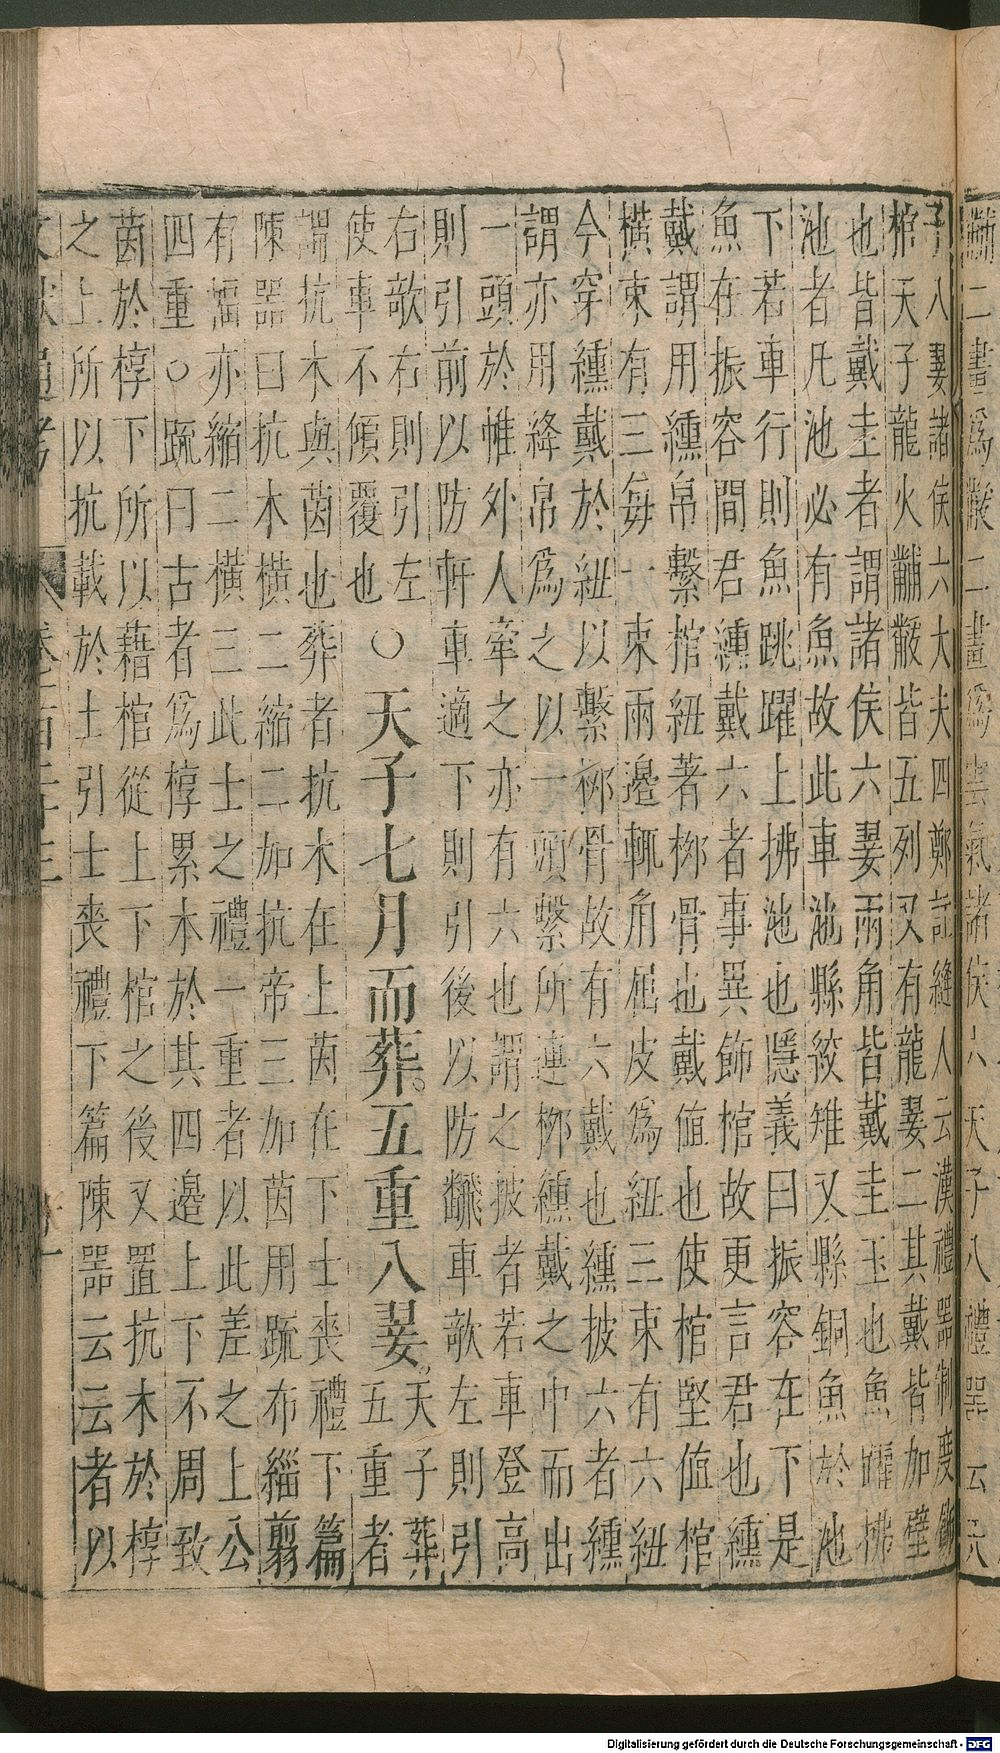 子八翣諸侯六大夫四鄭註縫人云漢禮器制度飾
棺天子龍火黼黻皆五列又有龍翣二其戴皆加璧
也皆戴圭者謂諸侯六翣兩角皆戴圭玉也魚躍拂
池者凡池必有魚故此車池縣絞雉又縣銅魚於池
下若車行則魚跳躍上拂池也隱義曰振容在下是
魚在振容間君纁戴六者事異飾棺故更言君也纁
戴謂用纁帛繫棺紐著桺骨也戴值也使棺堅值棺
橫束有三每一束兩邊輒角屈皮爲紐三束有六紐
今穿纁戴於紐以繫桺骨故有六戴也纁披六者纁
謂亦用絳帛爲之以一頭繫所連桺纁戴之中而出
一頭於帷外人牽之亦有六也謂之披者若車登高
則引前以防軒車適下則引後以防翻車欹左則引
右欹右則引左
使車不傾覆也
○天子七月而葬五重八翣
天子葬
五重者
謂抗木與茵也葬者抗木在上茵在下士喪禮下篇
陳器曰抗木橫二縮二加抗帝三加茵用䟽布緇翦
有幅亦縮二橫三此士之禮一重者以此差之上公
四重○䟽曰古者爲椁累木於其四邊上下不周致
茵於椁下所以藉棺從上下棺之後又置抗木於椁
之上所以抗載於土引士喪禮下篇陳器云云者以
Digitalisierung gefördert durch die Deutsche Forschungsgemeinschaft - DFG